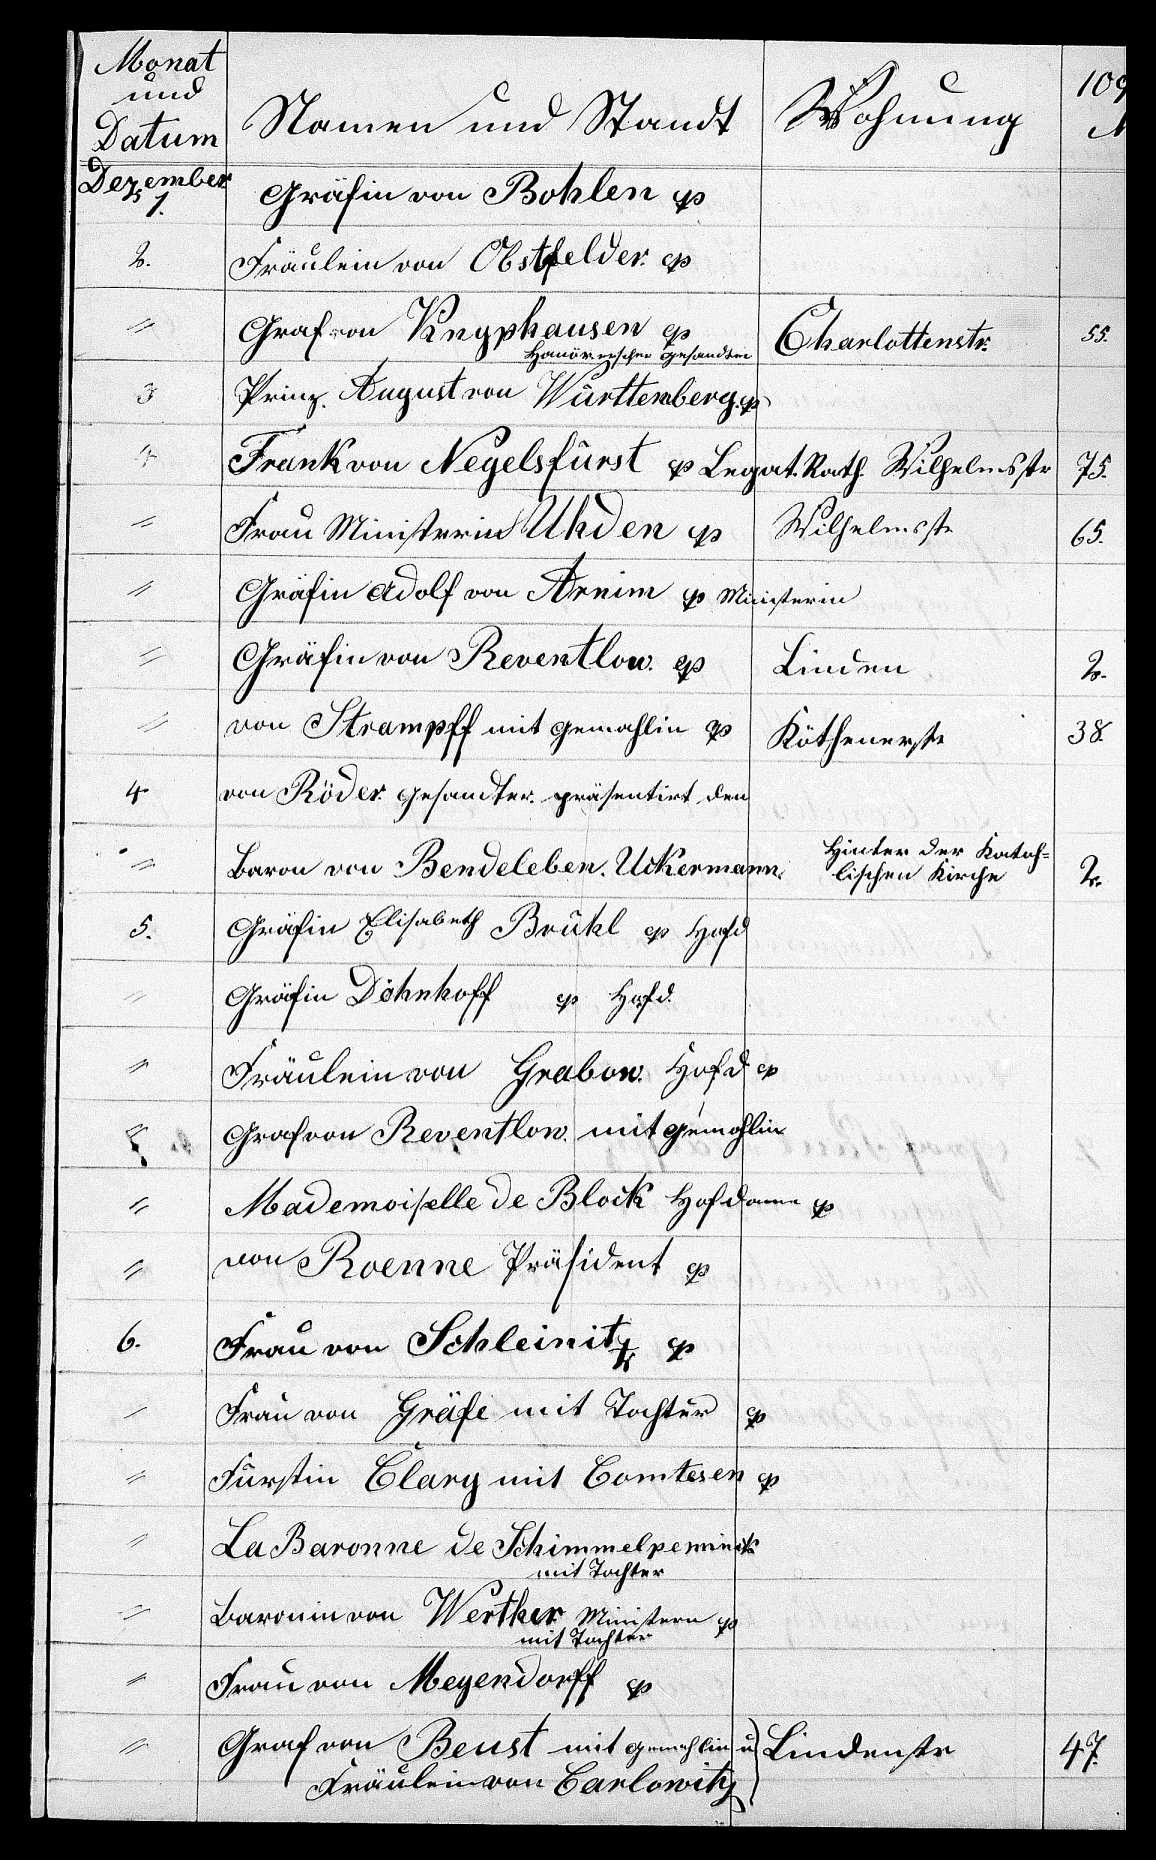 Monat und Datum | Namen und Standt | Wohnung | 109
Dezember 1. | Gräfin von Bohlen p
2. | Fräulein von Obstfelder. p
" | Graf von Knyphausen p | Charlottenstr. | 55.
Hanöverscher Gesandter
3 | Prinz. August von Württemberg. p
" | Frank von Negelsfürst p Legat. Rath. | Wilhelmsstr | 75.
" | Frau Ministerin Uhden p | Wilhelmsstr | 65.
" | Gräfin Adolf von Arnim p Ministerin
" | Gräfin von Reventlow. p | Linden | 2.
" | von Strampff mit Gemahlin p | Köthenerstr | 38.
4 | von Röder. Gesandter. präsentirt den
" | Baron von Bendeleben. Uckermann. | Hinter der Katoh=
lischen Kirche | 2.
5. | Gräfin Elisabeth Brühl p Hofd
" | Gräfin Döhnhoff p Hofd.
" | Fräulein von Grabow. Hofd p
" | Graf von Reventlow. mit Gemahlin
" | Mademoiselle de Block Hofdame p
" | von Roenne Präsident p
6. | Frau von Schleinitz p
" | Frau von Gräfe mit Tochter p
" | Fürstin Clary mit Comtesen p
" | La Baronne de Schimmelpennink
mit Tochter
" | Baronin von Werther Ministern p
mit Tochter
" | Frau von Meyendorff p
" | Graf von Beust mit Gemahlin u | Lindenstr | 47.
Fräulein von Carlowitz